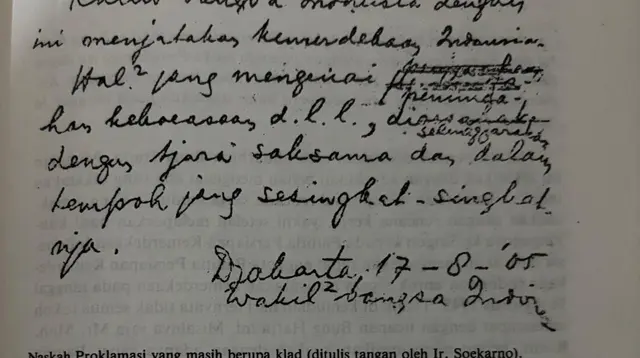 Kami bangsa Indonesia dengan
ini menjatakan kemerdekaan Indonesia.
Hal² jang mengenai
peminda-
han kekoeasaan d.l.l.,
diselenggarakan
dengan tjara saksama dan dalam
tempoh jang sesingkat-singkat-
nja.
Djakarta, 17 - 8 - '05
Wakil² bangsa Indonesia
Naskah Proklamasi yang masih berupa klad (ditulis tangan oleh Ir. Soekarno).